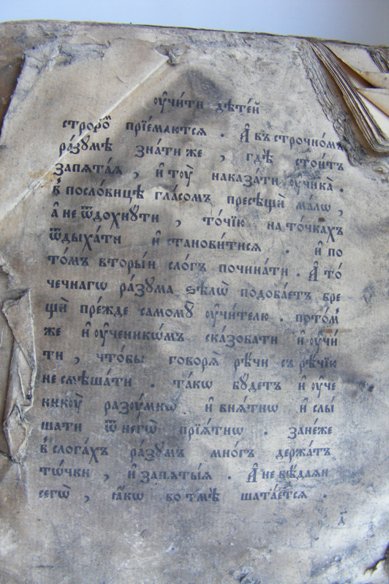 оу҆чи́ти дѣте́й
стро́го прїе́маютсѧ . А҆ въ стро́чномъ
ра́зꙋмѣ зна́ти же , гдѣ̀ стои́тъ
запѧта́ѧ , и҆ тꙋ̀ наказа́ти оу҆чн҃ка̀ .
в посло́вицѣ гла́сомъ пресѣщѝ ма́лѡ ,
а҆ не ѿдохнꙋ́ти , то́чїю на то́чкахъ
ѿдыха́ти и҆ станови́тисѧ . и҆ по
то́мъ вторы́и сло́гъ почина́ти . А҆ то́
чечнагѡ ра́зꙋма ѕѣлѡ̀ подоба́етъ бре
щѝ пре́жде самомꙋ̀ оу҆чи́телю . пото́м
же и҆ оу҆ченикѡ́мъ ска́зовати и҆ оу҆чи́
ти , что́бы говорѧ̀ рѣ́чи съ рѣ́чїю
не смѣша́ти . та́кѡ бꙋ́детъ и҆ оу҆че
никꙋ̀ разꙋ́мнѡ и҆ внѧ́тнѡ и҆ слы́
шати ѿ негѡ̀ прїѧ́тнѡ . зане́же
в сло́гахъ ра́зꙋмъ мно́гъ держа́тъ
тѡ́чки , и҆ запѧты́ѧ . А҆ не вѣ́даѧи
сегѡ̀ , ꙗ҆́кѡ во тмѣ̀ шата́етсѧ .